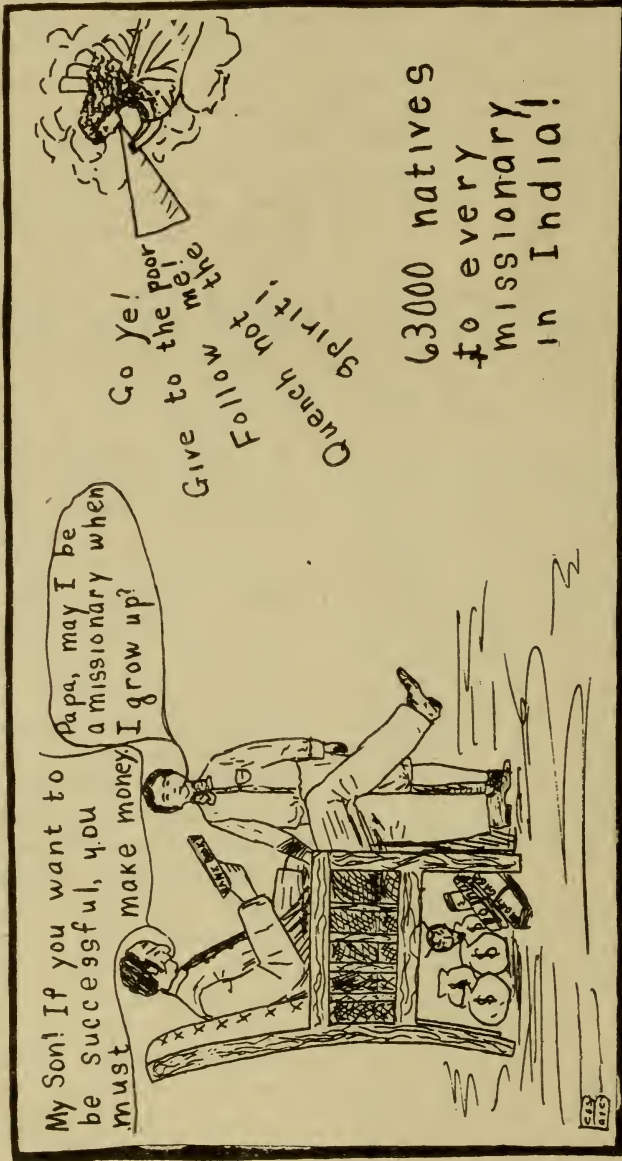 My Son! If you want to
be successful, you
must make money.
Papa, may I be
a missionary when
I grow up?
BANK BOOK
$
$
$
Go Ye!
Give to the poor
Follow me!
Quench not the
spirit!
63000 natives
to every
missionary
in India!